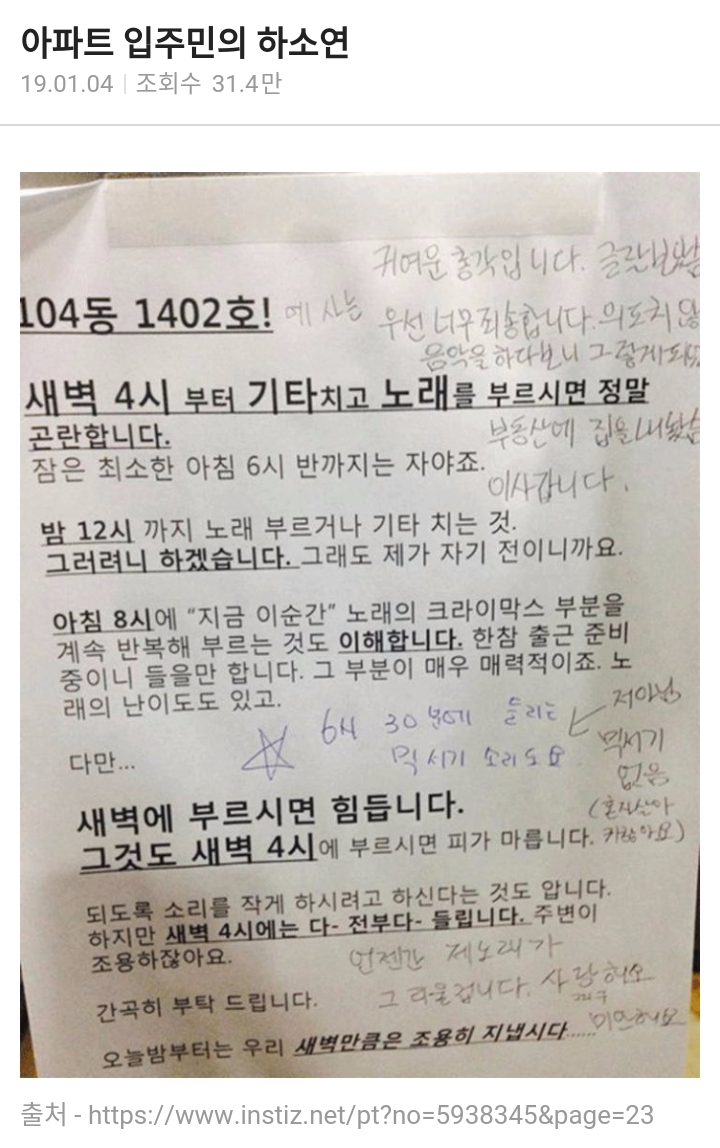 아파트 입주민의 하소연
19.01.04 | 조회수 31.4만
귀여운 총각입니다. 글 잘
104동 1402호! 에 사는
우선 너무 죄송합니다. 의도치 않
음악을 하다보니 그렇게
새벽 4시 부터 기타치고 노래를 부르시면 정말
곤란합니다.
부동산에 집을 내놨습
잠은 최소한 아침 6시 반까지는 자야죠.
이사갑니다.
밤 12시 까지 노래 부르거나 기타 치는 것.
그러려니 하겠습니다. 그래도 제가 자기 전이니까요.
아침 8시에 “지금 이순간” 노래의 크라이막스 부분을
계속 반복해 부르는 것도 이해합니다. 한참 출근 준비
중이니 들을만 합니다. 그 부분이 매우 매력적이죠. 노
래의 난이도도 있고.
☆ 6시 30분에 들리는
믹서기 소리도요.
저아님
믹서기
없음
(혼자살아
다만...
새벽에 부르시면 힘듭니다.
그것도 새벽 4시에 부르시면 피가 마릅니다.
되도록 소리를 작게 하시려고 하신다는 것도 압니다.
하지만 새벽 4시에는 다- 전부다- 들립니다. 주변이
조용하잖아요.
언젠간 제노래가
그리울겁니다. 사랑해요
간곡히 부탁 드립니다.
미안해요
오늘밤부터는 우리 새벽만큼은 조용히 지냅시다......
출처 - https://www.instiz.net/pt?no=5938345&page=23